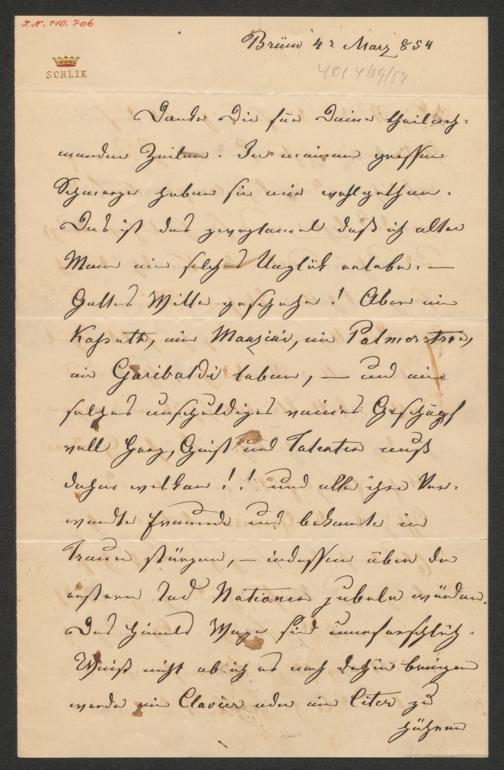 I.N. 110.706
SCHLIK
Brünn 4t März 854
Danke Dir für Deine theilneh-
menden Zeilen. In meinem grossen
Schmerze haben sie mir wohlgethan.
Das ist das daß ich alter
Mann ein solches Unglük erlebe. —
Gottes Wille geschehe! Aber ein
Kohsuth, ein Manzini, ein Palmerston,
ein Garibaldi leben, — und ein
solches unschuldiges reines Geschöpf
voll Herz, Geist und Talenten muß
dahin welken!! und alle ihre Ver-
wandte Freunde und bekante in
Trauer stürzen, — indessen über der
erstern Tod Nationen jubeln würden.
Des Himels Wege sind unerforschlich.
Weiß nicht ob ich es noch dahin bringen
werde ein Clavier oder eine Citer zu
hören